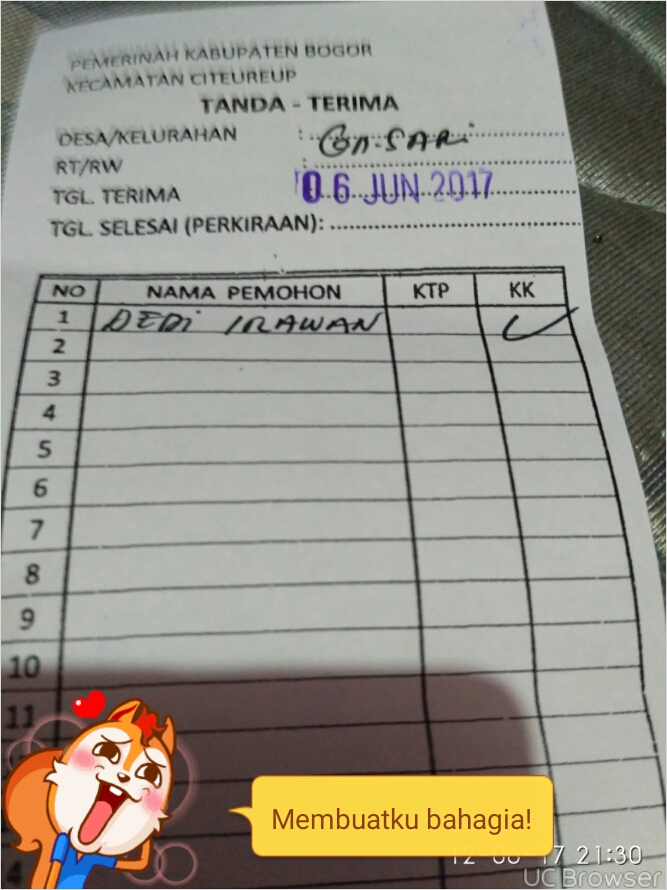 PEMERINAH KABUPATEN BOGOR
KECAMATAN CITEUREUP
TANDA - TERIMA
DESA/KELURAHAN :
RT/RW :
TGL. TERIMA 06 JUN 2017
TGL. SELESAI (PERKIRAAN):
NO NAMA PEMOHON KTP KK
1 DEDI IRAWAN ✓
2
3
4
5
6
7
8
9
10
11
Membuatku bahagia!
17 21:30
UC Browser